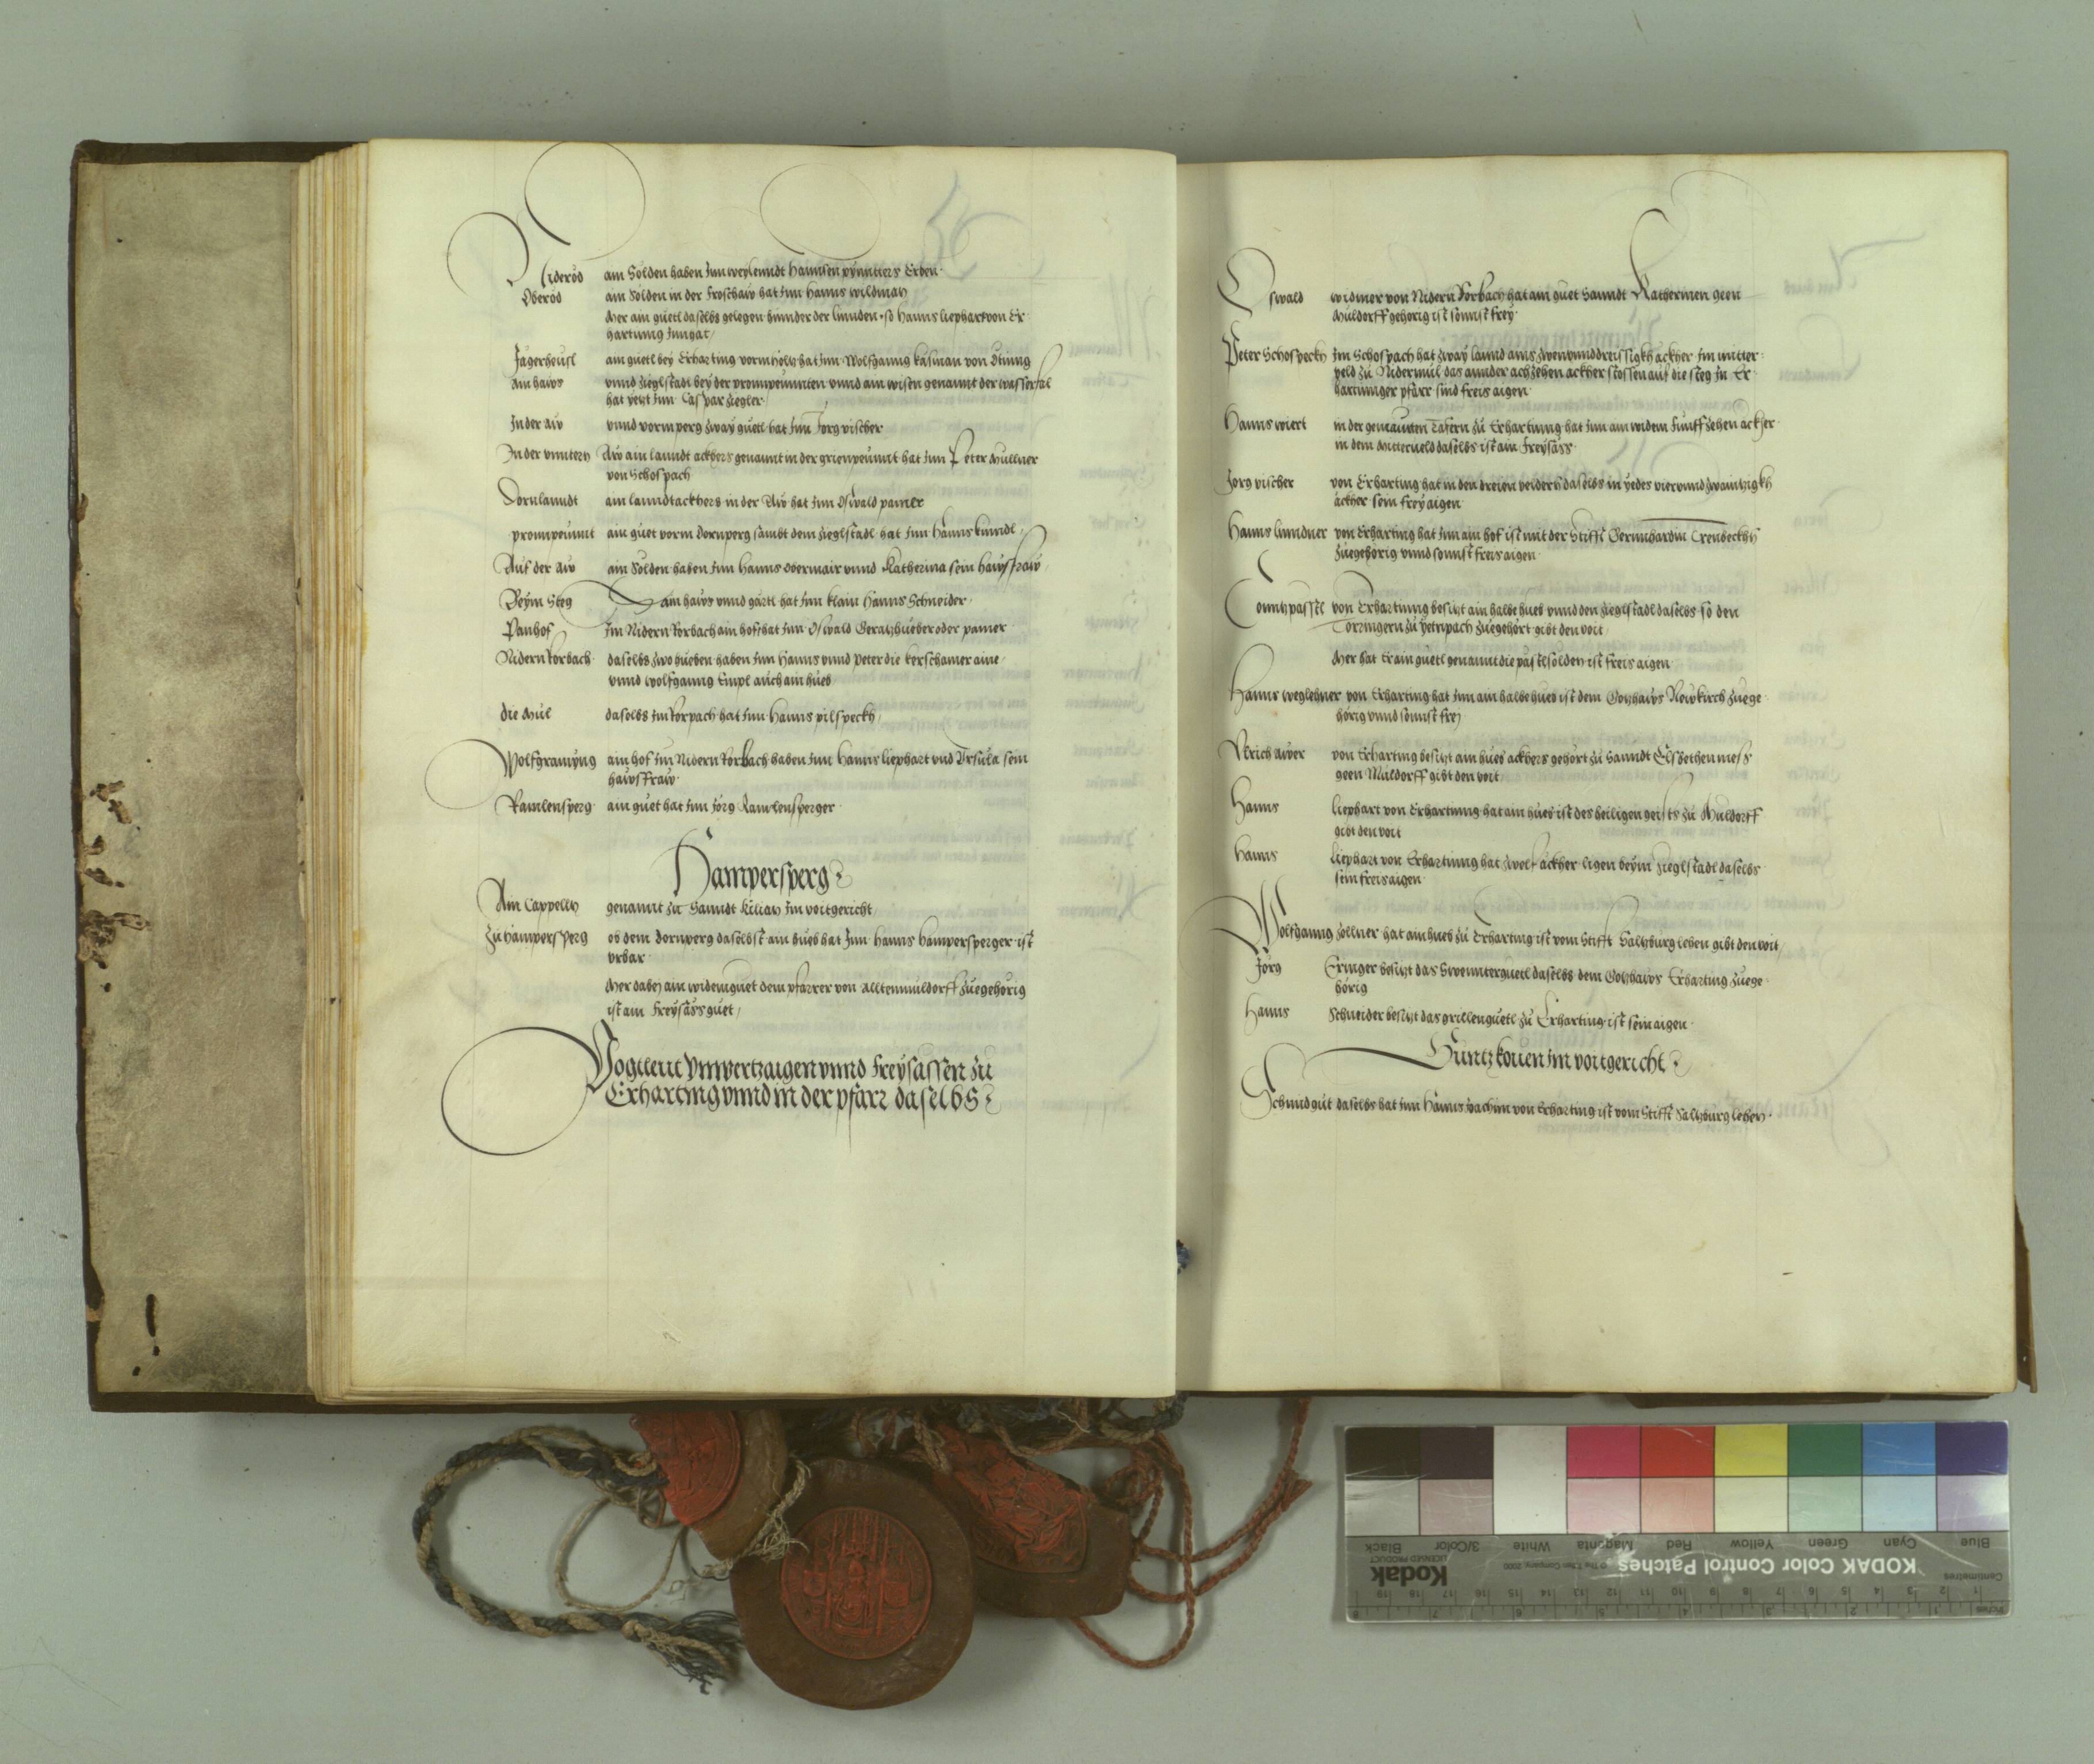 Niderod am Solden haben Jnn weylenndt Hannsen pynnters Erben
Oberod am Solden in der Froschaw hat Jnn Hanns wildman
Mer ain guetl daselbs gelegen hinnder der linnden so Hanns liephart von Er
hartinng Jnnhat
Jägerheusl ain guetl bey Erharting vorm holtz hat Jnn Wolfganng kasman von Ötting
ain haws vnnd zieglstadl bey der prompeunten vnnd ain wisen genannt der wasserfal
hat yetzt Jnn Caspar ziegler
Jn der aw vnnd vorm perg zway guetl hat Jnn Jorg vischer
Jn der vnntern Aw ain lanndt ackhers genannt in der grienpeunnt hat Jnn Peter Mullner
von Schospach
Dornlanndt ain lanndt ackhers in der Aw hat Jnn Oswald pamer
prompeunnt ain guet vorm Dornperg sambt dem zieglstadl hat Jnn Hanns kunndl
Auf der aw ain Solden haben Jnn Hanns Obermair vnnd Katherina sein hawsfraw
Beym Steg ain haws vnnd gärtl hat Jnn klain Hanns Schneider
Panhof Jm Nidern Rorbach ain hof hat Jnn Oswald Geratzhueber oder pamer
Nidern Rorbach daselbs zwo hueben haben Jnn Hanns vnnd Peter die kerschamer aine
vnnd wolfganng Empl auch ain hueb
die Mül daselbs Jm Rorpach hat Jnn Hanns pilspeckh
Wolfgramyng ain hof Jm Nidern Rorbach haben Jnn Hanns liephart vnd Vrsula sein
hawsfraw
Ramlensperg ain guet hat Jnn Jörg Ramlensperger
Hampersperg
Am Cappelln genannt zu Sanndt kilian Jm voitgericht
zu hampersperg ob dem dornperg daselbst ain hueb hat Jnn Hanns hampersperger ist
vrbar
Mer dabej ain widemguet dem pfarrer von Alltenmuldorff zuegehörig
ist ain Freysässguet
Vogtleut Vnnvertzaigen vnnd Freysassen zu
Erharting vnnd in der pfarr daselbs
Oswald widmer von Nidern Rorbach hat ain guet Sanndt Katherinen geen
Muldorff gehörig ist sonnst frey
Peter Schospeckh Jm Schospach hat zway lannd ains zwenunddreissigkh ackher Jm mitter
veld zu Nidermül das annder achzehen ackher stossen auf die steg Jn Er
hartinnger pfarr sind freis aigen
Hanns wiert in der genannten Tafern zu Erhartinng hat Jnn ain widem Funffzehen ackher
in dem Mitterveld daselbs ist ain Freysäss
Jorg vischer von Erharting hat in den dreien veldern daselbs in yedes viervnndzwaintzigkh
äckher sein frey aigen
Hanns lynndner von Erharting hat Jnn ain hof ist mit der Stifft Bernnhardin Trenbeckhn
zuegehörig vnnd sonnst freis aigen
Conntz passtl von Erhartinng besitzt ain halbe hueb vnnd den zieglstadl daselbs so den
Törringern zu yetnpach zuegehört gibt den voit
Mer hat Er ain guetl genannt die pästlsolden ist freis aigen
Hanns weglehner von Erharting hat Jnn ain halbe hueb ist dem Gotzhaws Newkirch zuege
hörig vnnd sonnst frej
Vlrich awer von Erharting besitzt ain hueb ackhers gehört zu Sanndt Elsbethen mess
geen Muldorff gibt den voit
Hanns liephart von Erhartinng hat ain hueb ist des heiligen geists zu Muldorff
gibt den voit
Hanns liephart von Erharting hat zwelf äckher ligen beym zieglstadl daselbs
sein freis aigen
Wolfganng zollner hat ain hueb zu Erharting ist vom Stifft Saltzburg lehen gibt den voit
Jörg Eringer besitzt das daselbs dem Gotzhaws Erharting zuege
hörig
Hanns Schneider besitzt das grillenguetl zu Erharting ist sein aigen
Huntzkouen im voitgericht
Schmidgut daselbs hat Jnn Hanns joachim von Erharting ist vom Stifft Saltzburg lehen
KODAK Color Control Patches
Kodak
LICENSED PRODUCT
© The Tiffen Company, 2000
Blue Cyan Green Yellow Red Magenta White 3/Color Black
Centimetres
1 2 3 4 5 6 7 8 9 10 11 12 13 14 15 16 17 18 19
Inches
1 2 3 4 5 6 7 8